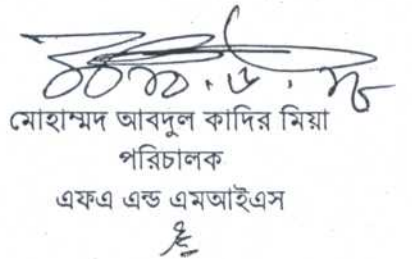 মোহাম্মদ আবদুল কাদির মিয়া
পরিচালক
এফএ এন্ড এমআইএস